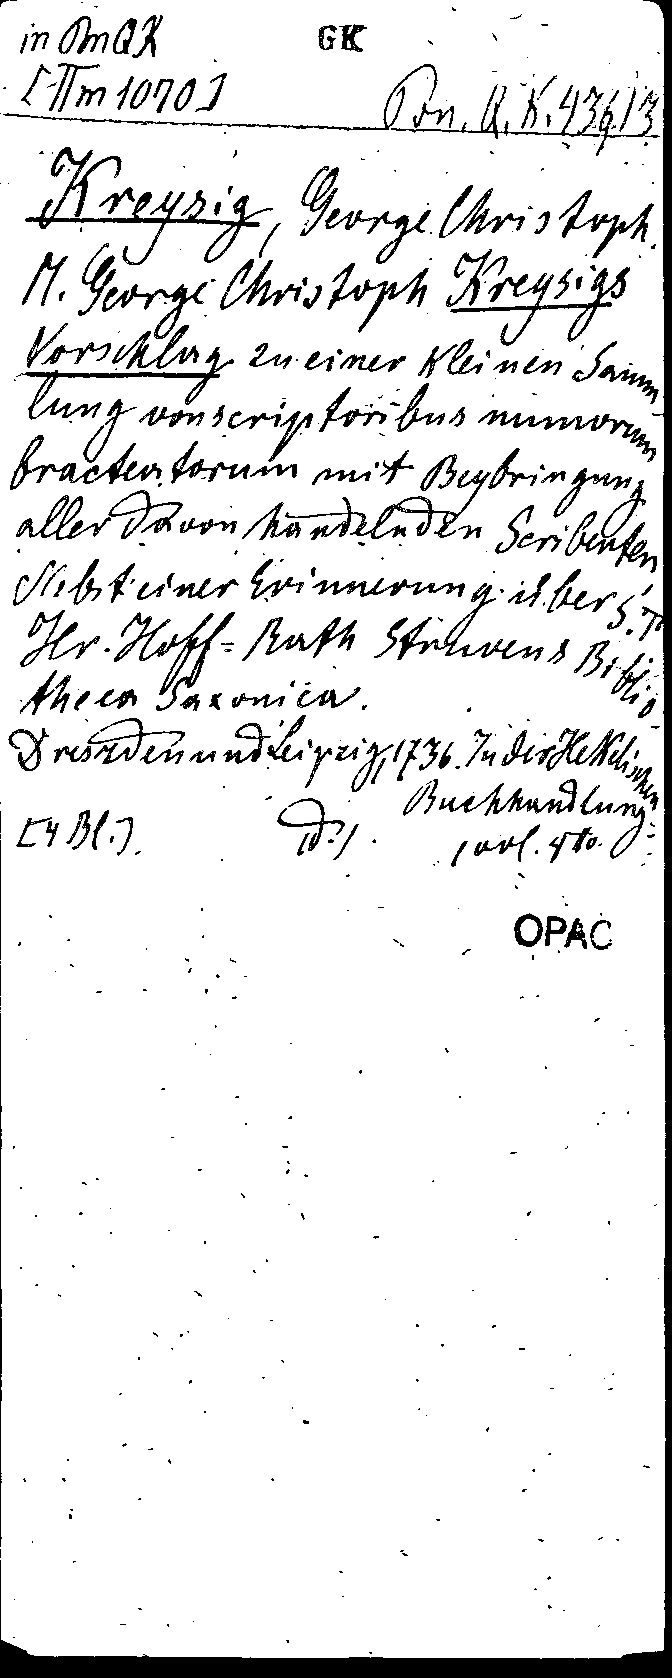 in Pon QK
GK
[IIm 1070]
Pon. Q. K. 436/3
Kreysig, George Christoph.
M. George Christoph Kreysigs
Vorschlag zu einer kleinen Samm-
lung von scriptoribus numorum
bracteatorum mit Beybringung
aller davon handelnden Scribenten
Nebst einer Erinnerung über S. T.
Hr. Hoff-Rath Struvens Biblio-
theca Saxonica.
Dresden und Leipzig, 1736. In der Hekelischen
Buchhandlung.
[4 Bl.]
1 vol. 4to.
OPAC